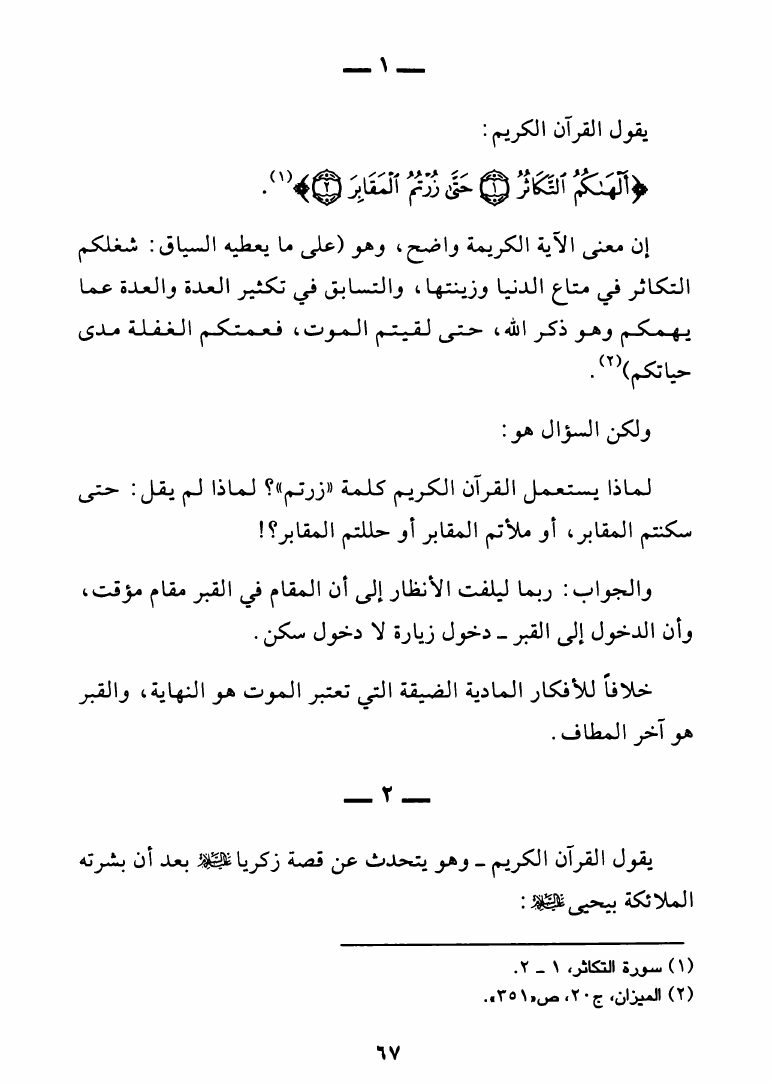 — ١ —
يقول القرآن الكريم:
﴿أَلْهَىٰكُمُ ٱلتَّكَاثُرُ ۝١ حَتَّىٰ زُرْتُمُ ٱلْمَقَابِرَ ۝٢﴾(١).
إن معنى الآية الكريمة واضح، وهو (على ما يعطيه السياق: شغلكم
التكاثر في متاع الدنيا وزينتها، والتسابق في تكثير العدة والعدة عما
يهمكم وهو ذكر الله، حتى لقيتم الموت، فعمتكم الغفلة مدى
حياتكم)(٢).
ولكن السؤال هو:
لماذا يستعمل القرآن الكريم كلمة «زرتم»؟ لماذا لم يقل: حتى
سكنتم المقابر، أو ملأتم المقابر أو حللتم المقابر؟!
والجواب: ربما ليلفت الأنظار إلى أن المقام في القبر مقام مؤقت،
وأن الدخول إلى القبر - دخول زيارة لا دخول سكن.
خلافاً للأفكار المادية الضيقة التي تعتبر الموت هو النهاية، والقبر
هو آخر المطاف.
— ٢ —
يقول القرآن الكريم - وهو يتحدث عن قصة زكريا عليه السلام بعد أن بشرته
الملائكة بيحيى عليه السلام:
(١) سورة التكاثر، ١ - ٢.
(٢) الميزان، ج٢٠، ص«٣٥١».
٦٧